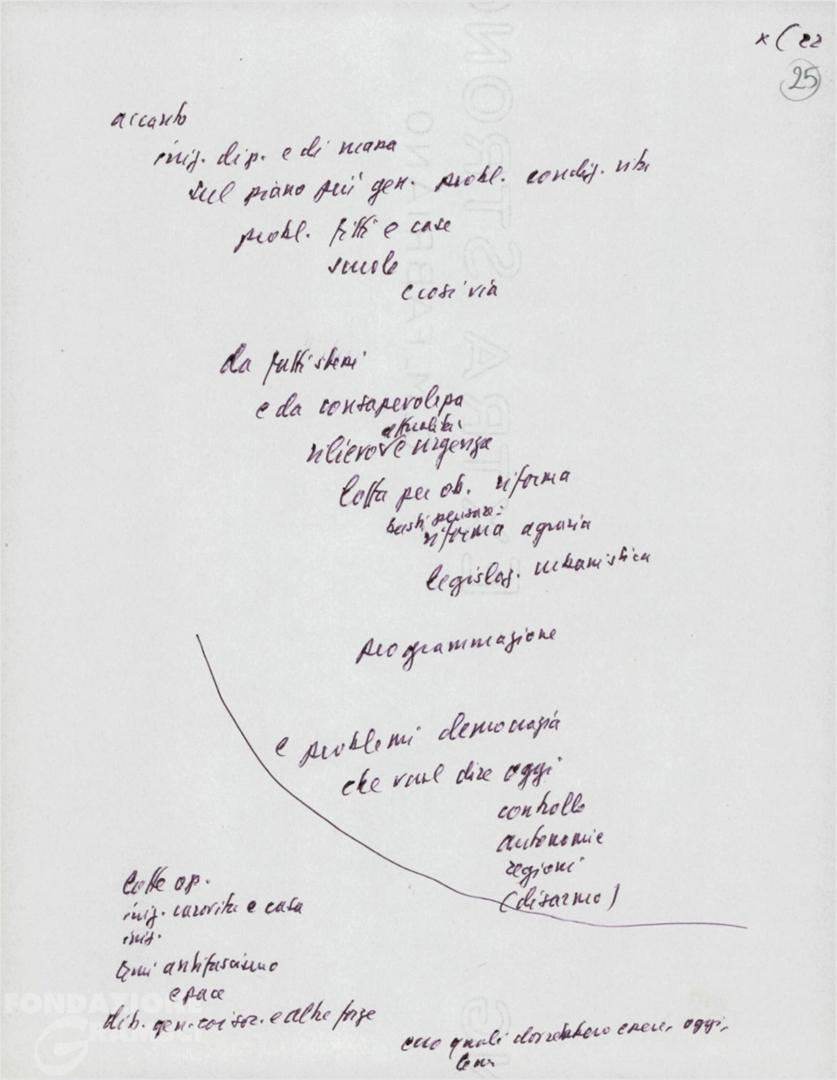 x ( 22
25
accanto
iniz. dip. e di massa
sul piano più gen. probl. condiz. vita
probl. fitti e case
scuola
e così via
da fatti stessi
e da consapevolezza
attualità
rilievo e urgenza
lotta per ob. riforma
basti pensare:
riforma agraria
legislaz. urbanistica
programmazione
e problemi democrazia
che vuol dire oggi
controllo
autonomie
regioni
(disarmo)
lotte op.
iniz. carovita e casa
iniz.
temi antifascismo
e pace
dib. gen. coi soc. e altre forze
ecco quali dovrebbero essere, oggi,
FONDAZIONE
Gramsci
EXTRA STRONG